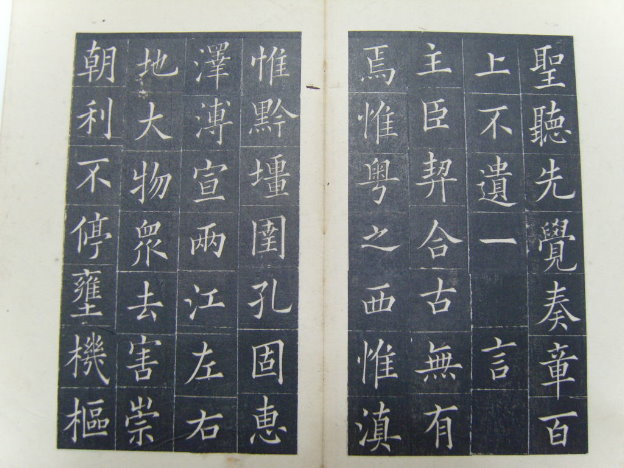 聖聽先覺奏章百
上不遺一 言
主臣契合古無有
焉惟粤之西惟滇
惟黔壃圉孔固惠
澤溥宣兩江左右
地大物衆去害崇
朝利不停壅機樞